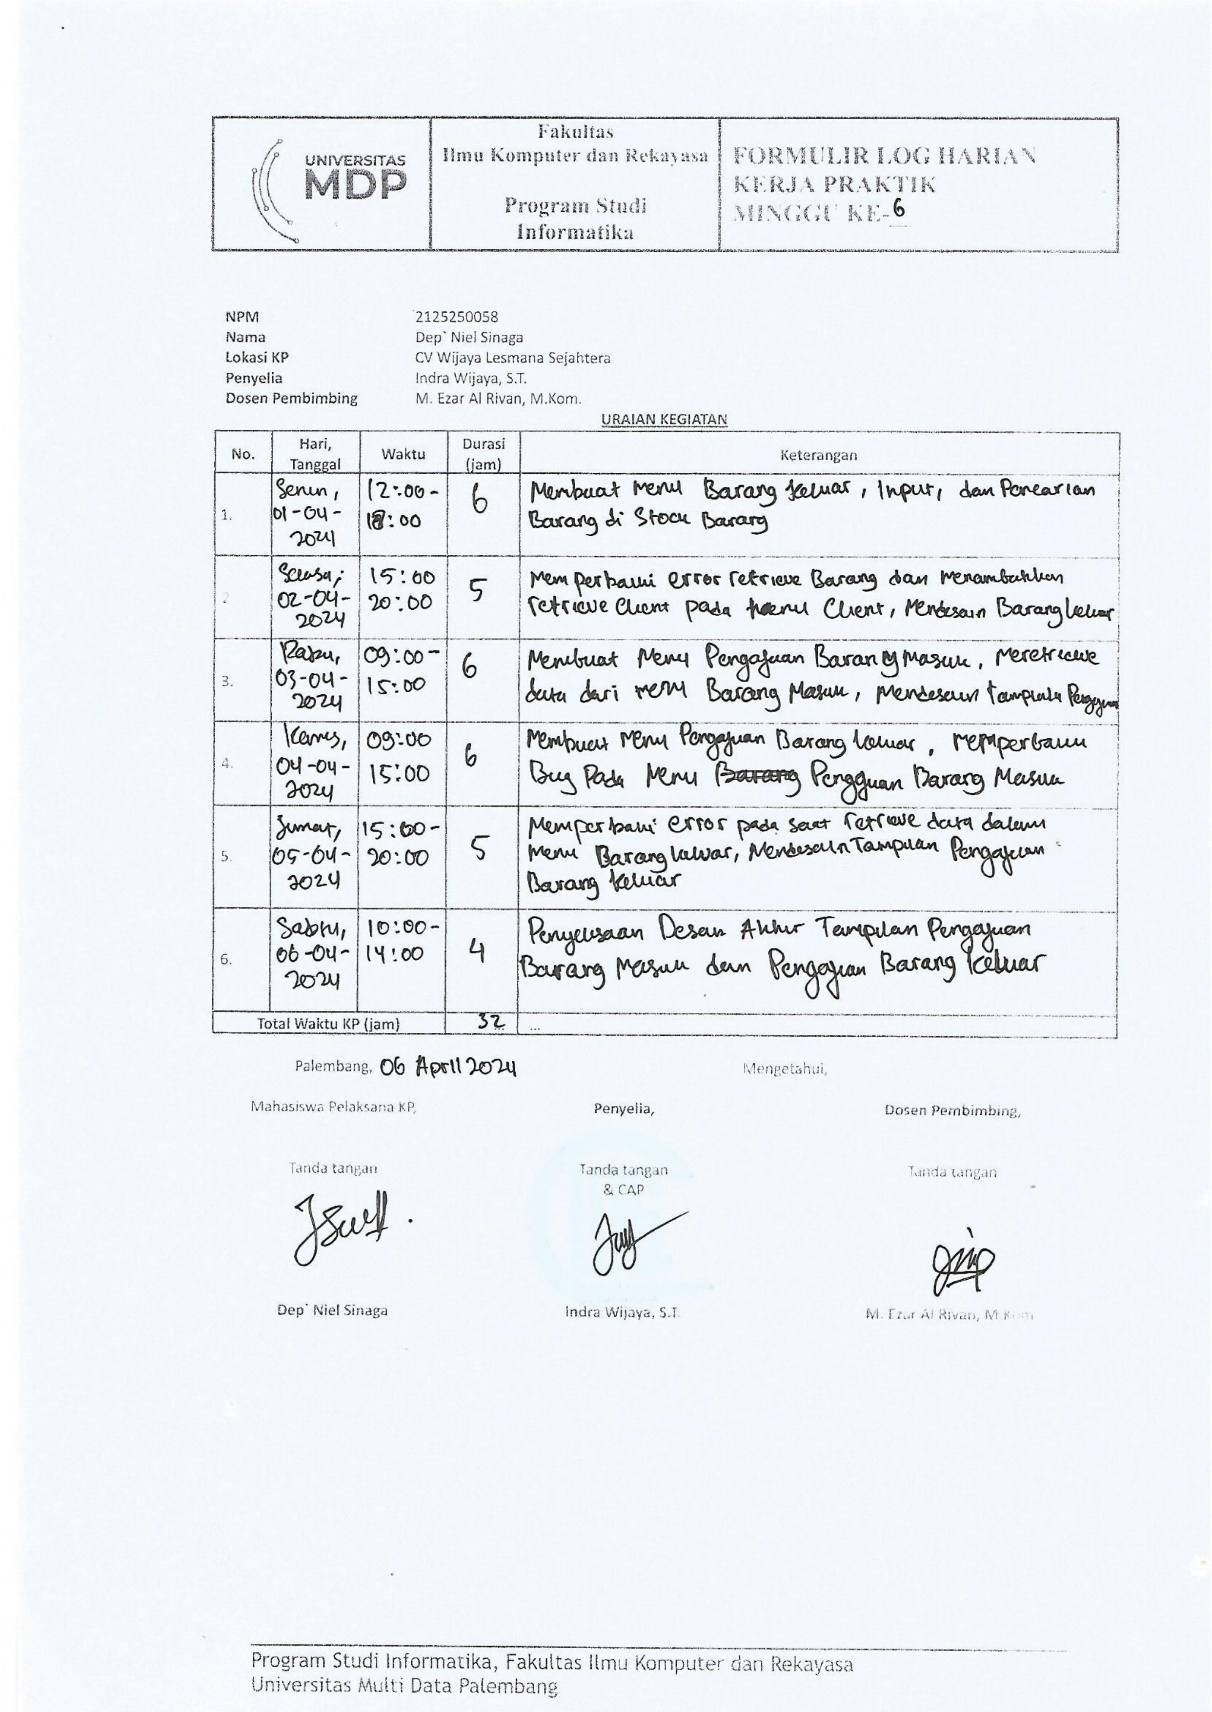 UNIVERSITAS
MDP
Fakultas
Ilmu Komputer dan Rekayasa
Program Studi
Informatika
FORMULIR LOG HARIAN
KERJA PRAKTIK
MINGGU KE-6
NPM 2125250058
Nama Dep` Niel Sinaga
Lokasi KP CV Wijaya Lesmana Sejahtera
Penyelia Indra Wijaya, S.T.
Dosen Pembimbing M. Ezar Al Rivan, M.Kom.
URAIAN KEGIATAN
No. Hari, Tanggal Waktu Durasi (jam) Keterangan
1. Senin, 01-04-2024 12:00-18:00 6 Membuat Menu Barang Keluar, Input, dan Pencarian
Barang di Stock Barang
2 Selasa, 02-04-2024 15:00 20:00 5 Memperbaiki error retrieve Barang dan Menambahkan
retrieve Client pada Menu Client, Mendesain Barang keluar
3. Rabu, 03-04-2024 09:00-15:00 6 Membuat Menu Pengajuan Barang Masuk, Meretrieve
data dari menu Barang Masuk, Mendesain
4. Kamis, 04-04-2024 09:00 15:00 6 Membuat Menu Pengajuan Barang keluar, memperbaiki
Bug Pada Menu Barang Pengajuan Barang Masuk
5. Jumat, 05-04-2024 15:00-20:00 5 Memperbaiki error pada saat retrieve data dalam
Menu Barang keluar, Mendesain Tampilan Pengajuan
Barang keluar
6. Sabtu, 06-04-2024 10:00-14:00 4 Desain Akhir Tampilan Pengajuan
Barang Masuk dan Pengajuan Barang Keluar
Total Waktu KP (jam) 32 ...
Palembang, 06 April 2024 Mengetahui,
Mahasiswa Pelaksana KP, Penyelia, Dosen Pembimbing,
Tanda tangan Tanda tangan Tanda tangan
& CAP
Dep` Niel Sinaga Indra Wijaya, S.T. M. Ezar Al Rivan, M.Kom
Program Studi Informatika, Fakultas Ilmu Komputer dan Rekayasa
Universitas Multi Data Palembang